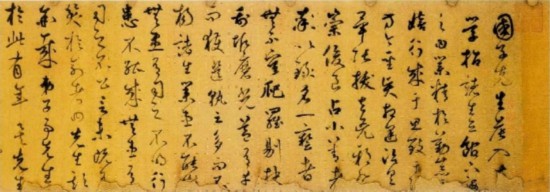 國子先生晨入太
學招諸生立館下誨
之曰業精於勤荒于
嬉行成于思毀于隨
方今聖賢相逢治具
畢張拔去兇邪登
崇俊良占小善者
率以錄名一藝者
無不庸爬羅剔抉
刮垢磨光蓋有幸
而獲選孰云多而不
揚諸生業患不能精
無患有司之不明行
患不能成無患有
司之不公言未既有
笑於列者曰先生欺
余哉弟子事先生
於此有年矣先生